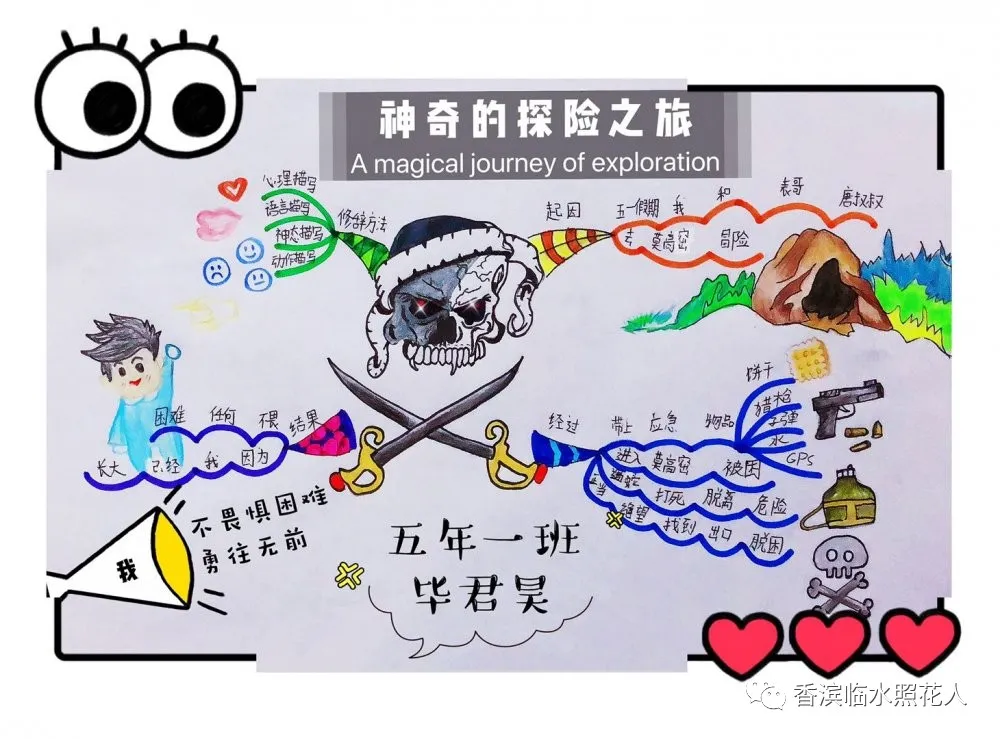 神奇的探险之旅
A magical journey of exploration
心理描写
语言描写
神态描写
动作描写
修辞方法
起因
五一假期 我 和 表哥 唐叔叔
去 莫高密 冒险
困难 任何 不畏 结果
长大 已经 我 因为
经过
带上 应急 物品
饼干
猎枪
子弹
水
GPS
进入 莫高密 被困
遇蛇 打死 脱离 危险
当 绝望 找到 出口 脱困
我
不畏惧困难
勇往无前
五年一班
毕君昊
香滨临水照花人